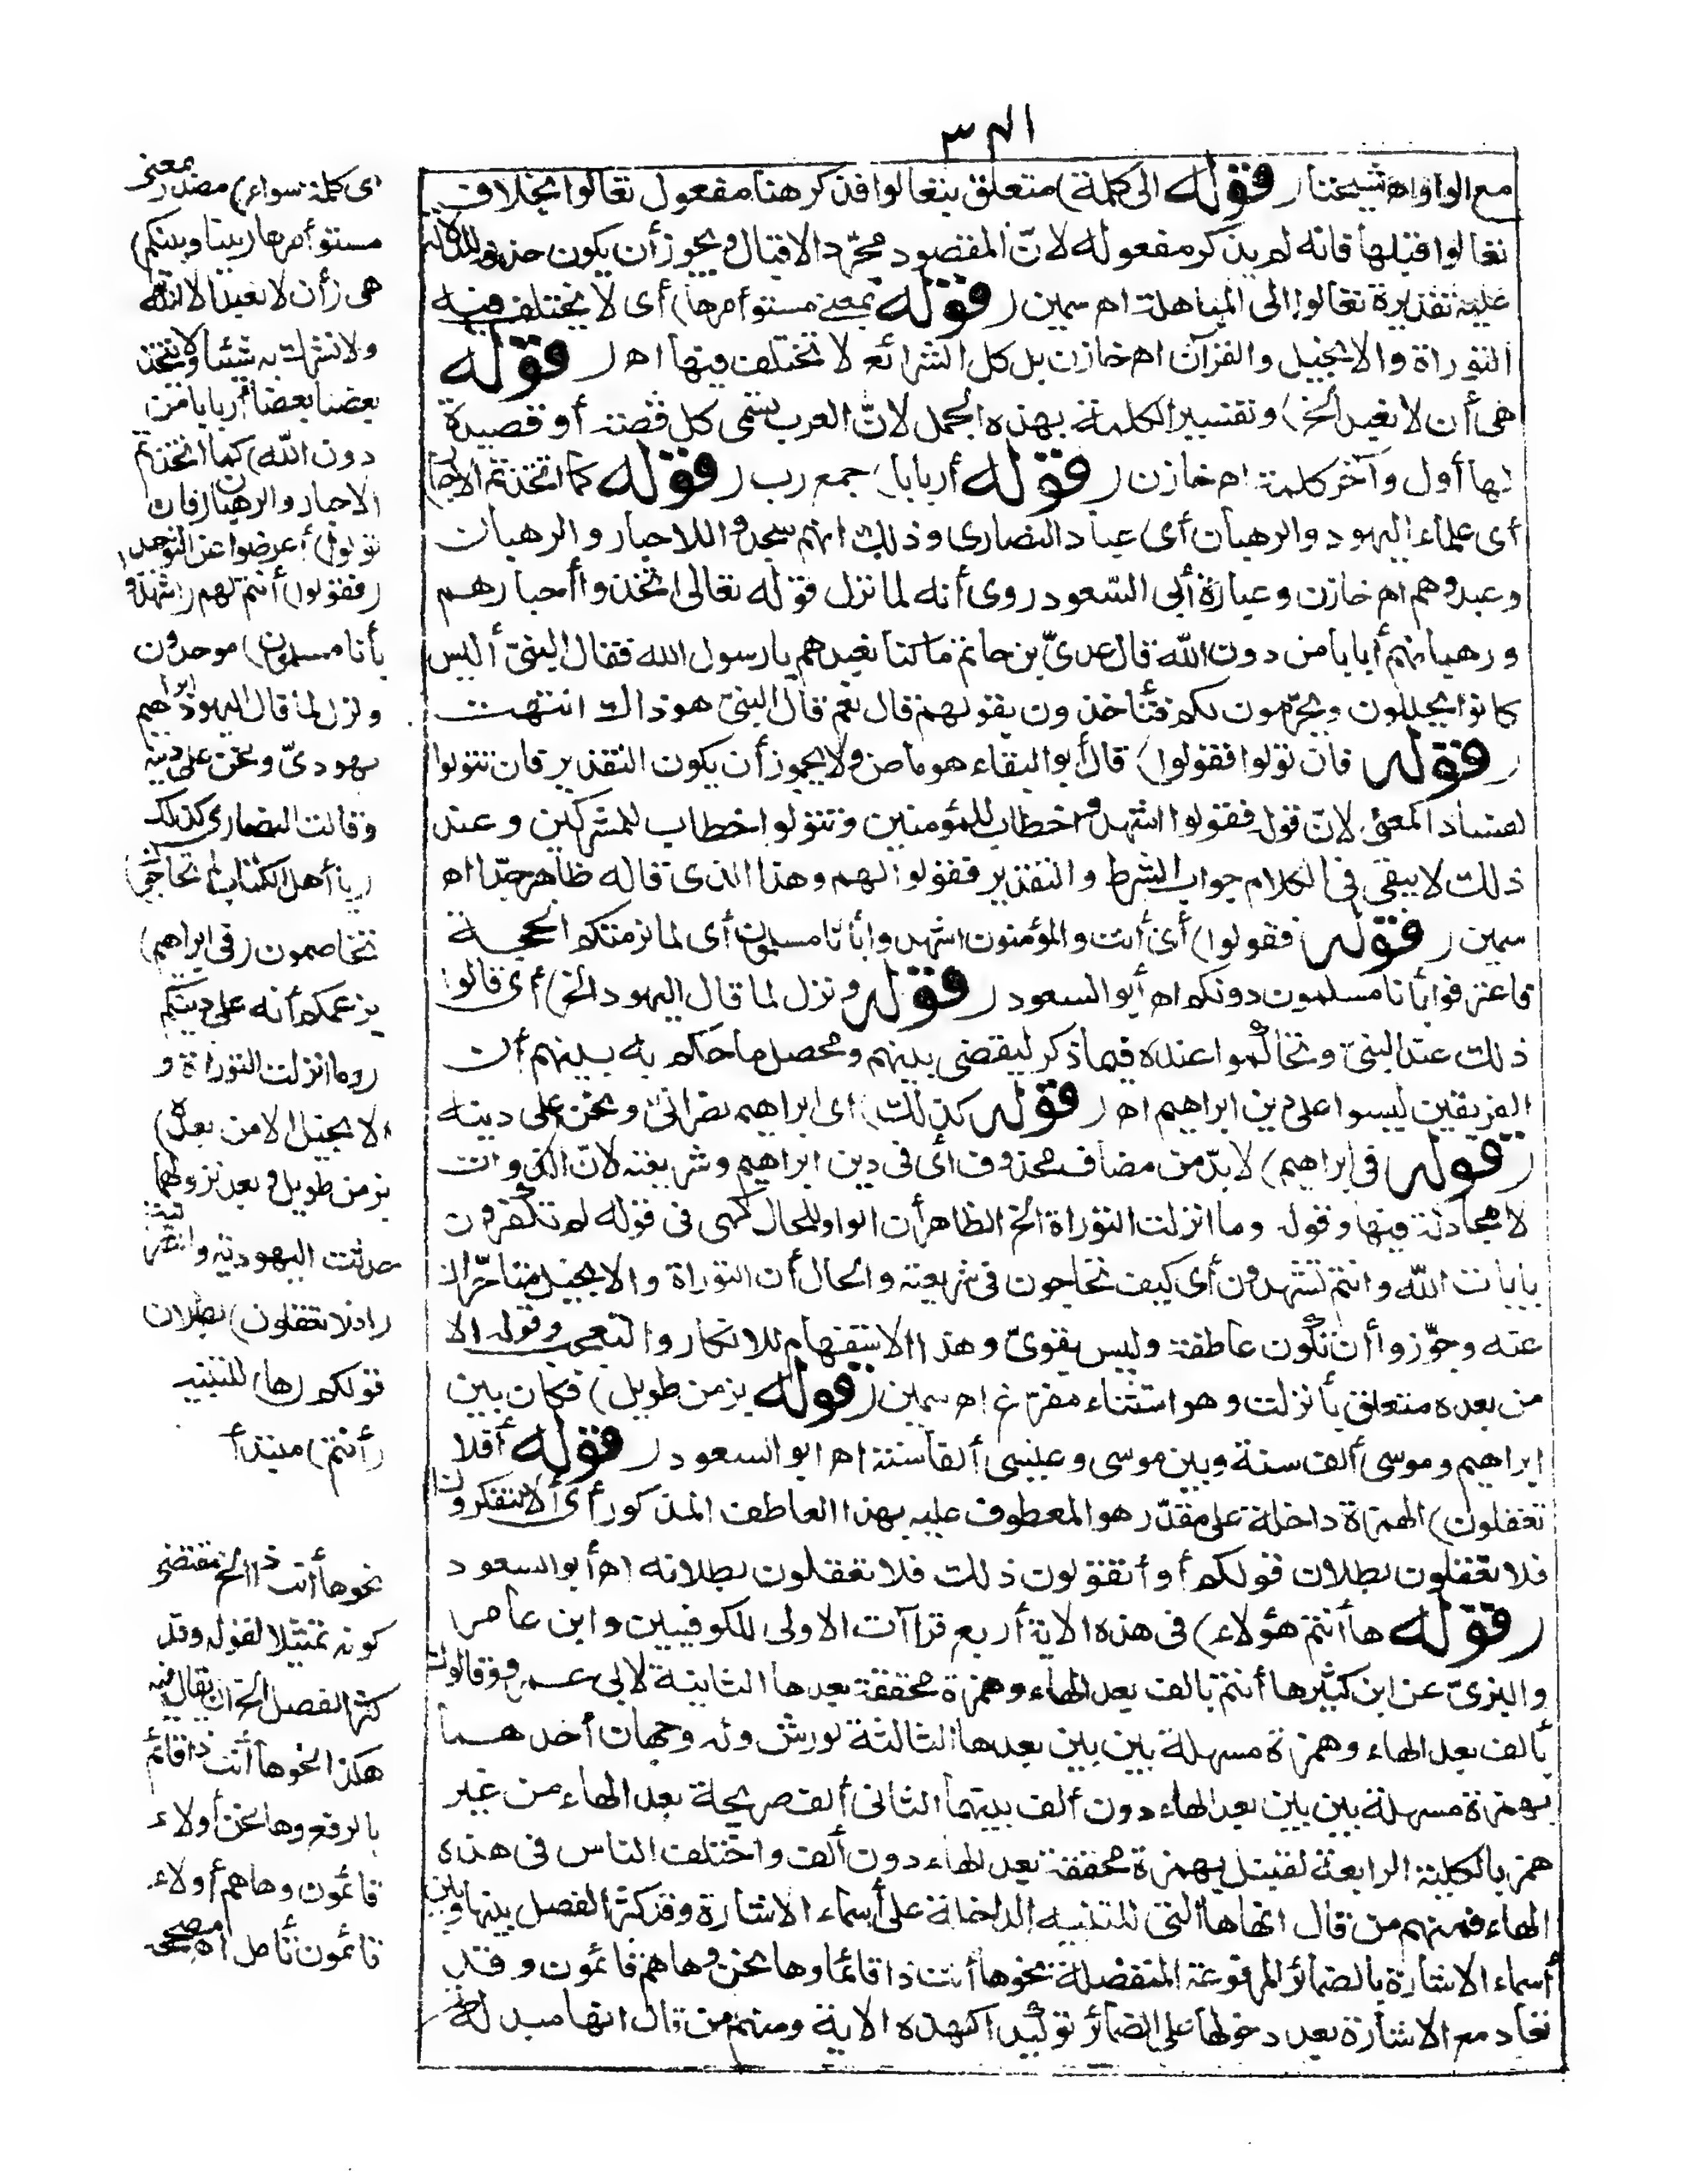 ال ٣
مع الواو اه شيخنا (قوله الى كلمة) متعلق بتعالوا فذكر هنا مفعول تعالوا بخلاف
تعالوا قبلها فانه لم يذكر مفعوله لانّ المقصود مجرّد الاقبال ويجوز أن يكون حذفه للدلالة
عليه تقديره تعالوا الى المباهلة اه سمين (قوله بمعنى مستو أمرها) أى لا يختلف فيه
التوراة والانجيل والقرآن اه خازن بل كل الشرائع لا تختلف فيها اه (قوله
هى أن لا نعبد الخ) وتفسير الكلمة بهذه الجمل لانّ العرب تسمى كل قصة أو قصيدة
لها أول وآخر كلمة اه خازن (قوله أربابا) جمع رب (قوله كما اتخذتم الاحبار)
أى علماء اليهود والرهبان أى عباد النصارى وذلك انهم سجدوا للاحبار والرهبان
وعبدوهم اه خازن وعبارة أبى السّعود روى أنه لما نزل قوله تعالى اتخذوا أحبارهم
ورهبانهم أربابا من دون الله قال عدىّ بن حاتم ما كنا نعبدهم يا رسول الله فقال النبىّ أليس
كانوا يحللون ويحرّمون لكم فتأخذون بقولهم قال نعم قال النبىّ هو ذاك انتهت
(قوله فان تولوا فقولوا) قال أبو البقاء هو ماض ولا يجوز أن يكون التقدير فان تتولوا
لفساد المعنى لانّ قوله فقولوا اشهدوا خطاب للمؤمنين وتتولوا خطاب للمشركين وعند
ذلك لا يبقى فى الكلام جواب الشرط والتقدير فقولوا لهم وهذا الذى قاله ظاهر جدّا اه
سمين (قوله فقولوا) أى أنت والمؤمنون اشهدوا بأنا مسلمون أى لما لزمتكم الحجة
فاعترفوا بأنا مسلمون دونكم اه أبو السعود (قوله ونزل لما قال اليهود الخ) أى قالوا
ذلك عند النبىّ وتحاكموا عنده فيما ذكر ليقضى بينهم ومحصل ما حكم به بينهم أن
الفريقين ليسوا على دين ابراهيم اه (قوله كذلك) أى ابراهيم نصرانىّ ونحن على دينه
(قوله فى ابراهيم) لا بدّ من مضاف محذوف أى فى دين ابراهيم وشريعته لانّ الذوات
لا مجادلة فيها وقوله وما انزلت التوراة الخ الظاهر أن الواو للحال كهى فى قوله لم تكفرون
بآيات الله وأنتم تشهدون أى كيف تحاجون فى شريعته والحال أن التوراة والانجيل متأخران
عنه وجوّزوا أن تكون عاطفة وليس بقوىّ وهذا الاستفهام للانكار والتعجب وقوله الا
من بعده متعلق بأنزلت وهو استثناء مفرّغ اه سمين (قوله بزمن طويل) فكان بين
ابراهيم وموسى ألف سنة وبين موسى وعيسى ألفا سنة اه ابو السعود (قوله أفلا
تعقلون) الهمزة داخلة على مقدّر هو المعطوف عليه بهذا العاطف المذكور أى ألا تتفكرون
فلا تعقلون بطلان قولكم أو أتقولون ذلك فلا تعقلون بطلانه اه أبو السعود
(قوله ها أنتم هؤلاء) فى هذه الآية أربع قراآت الاولى للكوفيين وابن عامر
والبزىّ عن ابن كثير ها أنتم بالف بعد الهاء وهمزة محققة بعدها الثانية لابى عمرو وقالون
بألف بعد الهاء وهمزة مسهلة بين بين بعدها الثالثة لورش وله وجهان أحدهما
بهمزة مسهلة بين بين بعد الهاء دون ألف بينهما الثانى ألف صريحة بعد الهاء من غير
همز بالكلية الرابعة لقنبل بهمزة محققة بعد الهاء دون ألف واختلف الناس فى هذه
الهاء فمنهم من قال انها ها التى للتنبيه الداخلة على أسماء الاشارة وقد كثر الفصل بينها وبين
أسماء الاشارة بالضمائر المرفوعة المنفصلة نحو ها أنت ذا قائما وها نحن وها هم قائمون وقد
تعاد مع الاشارة بعد دخولها على الضمائر توكيدا كهذه الآية ومنهم من قال انها مبدلة
أى كلمة سواء) مصدر بمعنى
مستو أمرها (بيننا وبينكم)
هى (أن لا نعبد الا الله
ولا نشرك به شيئا ولا يتخذ
بعضنا بعضا أربابا من
دون الله) كما اتخذتم
الاحبار والرهبان (فان
تولوا) أعرضوا عن التوحيد
(فقولوا) أنتم لهم (اشهدوا
بأنا مسلمون) موحدون
ونزل لما قال اليهود ابراهيم
يهودىّ ونحن على دينه
وقالت النصارى كذلك
(يا أهل الكتاب لم تحاجون)
تتخاصمون (فى ابراهيم)
بزعمكم أنه على دينكم
(وما انزلت التوراة و
الانجيل الا من بعده)
بزمن طويل وبعد نزولهما
حدثت اليهودية والنصرانية
(أفلا تعقلون) بطلان
قولكم (ها) للتنبيه
(أنتم) مبتدأ
نحو ها أنت ذا الخ مقتضى
كونه تمثيلا لقوله وقد
كثر الفصل الخ أن يقال فيه
هكذا نحو ها أنت ذا قائم
بالرفع وها نحن أولاء
قائمون وها هم أولاء
قائمون تأمل اه مصححه